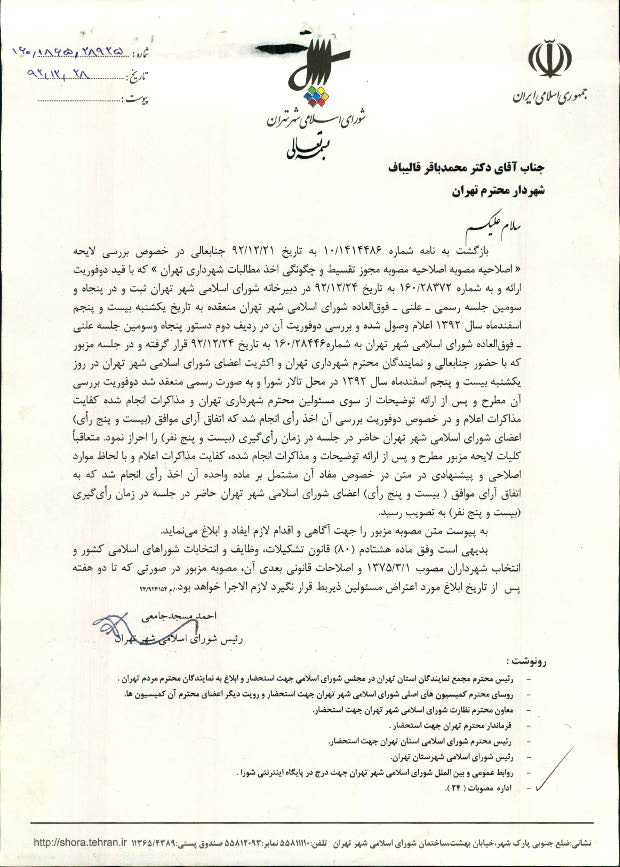 جمهوری اسلامی ایران
شورای اسلامی شهر تهران
بسمه تعالی
شماره: ۱۶۰/۱۸۶۵/۲۸۹۲۵
تاریخ: ۹۲/۱۲/۲۸
پیوست:
جناب آقای دکتر محمدباقر قالیباف
شهردار محترم تهران
سلام علیکم
بازگشت به نامه شماره ۱۰/۱۴۱۴۴۸۶ به تاریخ ۹۲/۱۲/۲۱ جنابعالی در خصوص بررسی لایحه
« اصلاحیه مصوبه اصلاحیه مصوبه مجوز تقسیط و چگونگی اخذ مطالبات شهرداری تهران » که با قید دوفوریت
ارائه و به شماره ۱۶۰/۲۸۳۷۲ به تاریخ ۹۲/۱۲/۲۴ در دبیرخانه شورای اسلامی شهر تهران ثبت و در پنجاه و
سومین جلسه رسمی ـ علنی ـ فوق‌العاده شورای اسلامی شهر تهران منعقده به تاریخ یکشنبه بیست و پنجم
اسفندماه سال ۱۳۹۲ اعلام وصول شده و بررسی دوفوریت آن در ردیف دوم دستور پنجاه وسومین جلسه علنی
ـ فوق‌العاده شورای اسلامی شهر تهران به شماره۱۶۰/۲۸۴۴۶ به تاریخ ۹۲/۱۲/۲۴ قرار گرفته و در جلسه مزبور
که با حضور جنابعالی و نمایندگان محترم شهرداری تهران و اکثریت اعضای شورای اسلامی شهر تهران در روز
یکشنبه بیست و پنجم اسفندماه سال ۱۳۹۲ در محل تالار شورا و به صورت رسمی منعقد شد دوفوریت بررسی
آن مطرح و پس از ارائه توضیحات از سوی مسئولین محترم شهرداری تهران و مذاکرات انجام شده کفایت
مذاکرات اعلام و در خصوص دوفوریت بررسی آن اخذ رأی انجام شد که اتفاق آرای موافق (بیست و پنج رأی)
اعضای شورای اسلامی شهر تهران حاضر در جلسه در زمان رأی‌گیری (بیست و پنج نفر) را احراز نمود. متعاقباً
کلیات لایحه مزبور مطرح و پس از ارائه توضیحات و مذاکرات انجام شده، کفایت مذاکرات اعلام و با لحاظ موارد
اصلاحی و پیشنهادی در متن در خصوص مفاد آن مشتمل بر ماده واحده آن اخذ رأی انجام شد که به
اتفاق آرای موافق ( بیست و پنج رأی) اعضای شورای اسلامی شهر تهران حاضر در جلسه در زمان رأی‌گیری
(بیست و پنج نفر) به تصویب رسید.
به پیوست متن مصوبه مزبور را جهت آگاهی و اقدام لازم ایفاد و ابلاغ می‌نماید.
بدیهی است وفق ماده هشتادم (۸۰) قانون تشکیلات، وظایف و انتخابات شوراهای اسلامی کشور و
انتخاب شهرداران مصوب ۱۳۷۵/۳/۱ و اصلاحات قانونی بعدی آن، مصوبه مزبور در صورتی که تا دو هفته
پس از تاریخ ابلاغ مورد اعتراض مسئولین ذیربط قرار نگیرد لازم الاجرا خواهد بود.
احمد مسجدجامعی
رئیس شورای اسلامی شهر تهران
رونوشت :
- رئیس محترم مجمع نمایندگان استان تهران در مجلس شورای اسلامی جهت استحضار و ابلاغ به نمایندگان محترم مردم تهران .
- روسای محترم کمیسیون های اصلی شورای اسلامی شهر تهران جهت استحضار و رویت دیگر اعضای محترم آن کمیسیون ها.
- معاون محترم نظارت شورای اسلامی شهر تهران جهت استحضار.
- فرماندار محترم تهران جهت استحضار .
- رئیس محترم شورای اسلامی استان تهران جهت استحضار.
- رئیس شورای اسلامی شهرستان تهران.
- روابط عمومی و بین الملل شورای اسلامی شهر تهران جهت درج در پایگاه اینترنتی شورا .
- اداره مصوبات ( ۲۴ ).
نشانی:ضلع جنوبی پارک شهر،خیابان بهشت،ساختمان شورای اسلامی شهر تهران تلفن:۵۵۸۱۱۱۱۰ نمابر:۵۵۸۱۲۰۹۳ صندوق پستی:۱۱۳۶۵/۴۳۸۹ http://shora.tehran.ir